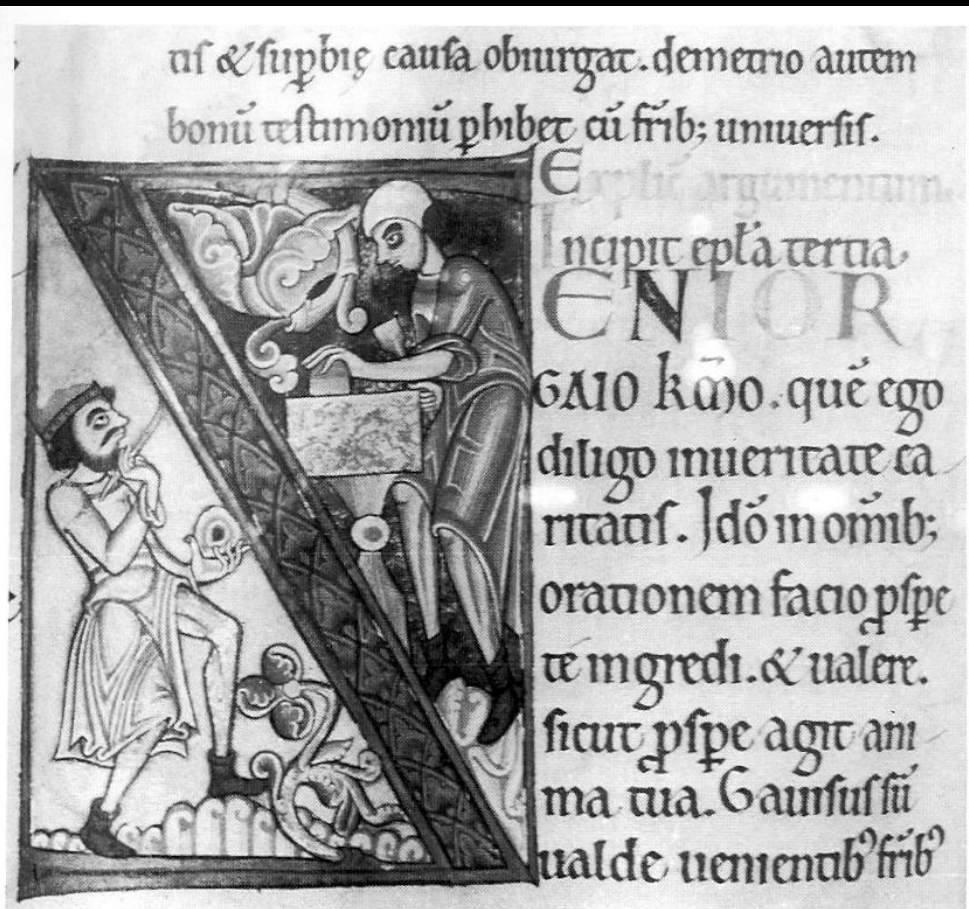 tis & supbię causa obiurgat. demetrio autem
bonū testimoniū phibet cū frib; uniuersis.
Explic argumentum.
Incipit epła tertia,
ENIOR
GAIO kmo. quē ego
diligo inueritate ca
ritatis. Idō in omib;
orationem facio pspe
te ingredi. & ualere.
sicut pspe agit ani
ma tua. Gauisus sū
ualde uenientib' frib'